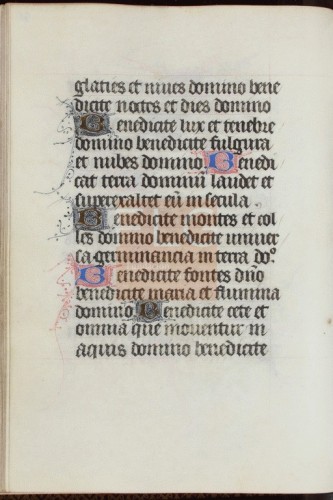 glacies et nives domino bene
dicite noctes et dies domino
Benedicite lux et tenebre
domino benedicite fulgura
et nubes domino. Benedi
cat terra dominū laudet et
superexaltet eū in secula
Benedicite montes et col
les domino benedicite univer
sa germinancia in terra do⁹.
Benedicite fontes dño
benedicite maria et flumina
domino Benedicite cete et
omnia que moventur in
aquis domino benedicite